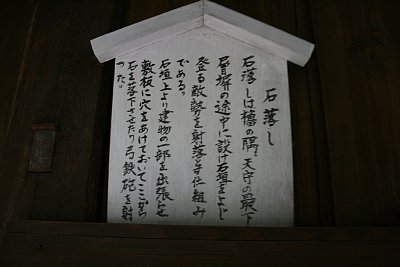 石落し
石落しは櫓の隅、天守の最下
層、塀の途中に設け石垣をよじ
登る敵勢を射落とす仕組み
である。
石垣上より建物の一部を出張らせ
敷板に穴をあけておいてここから
石を落下させたり弓鉄砲を射
った。